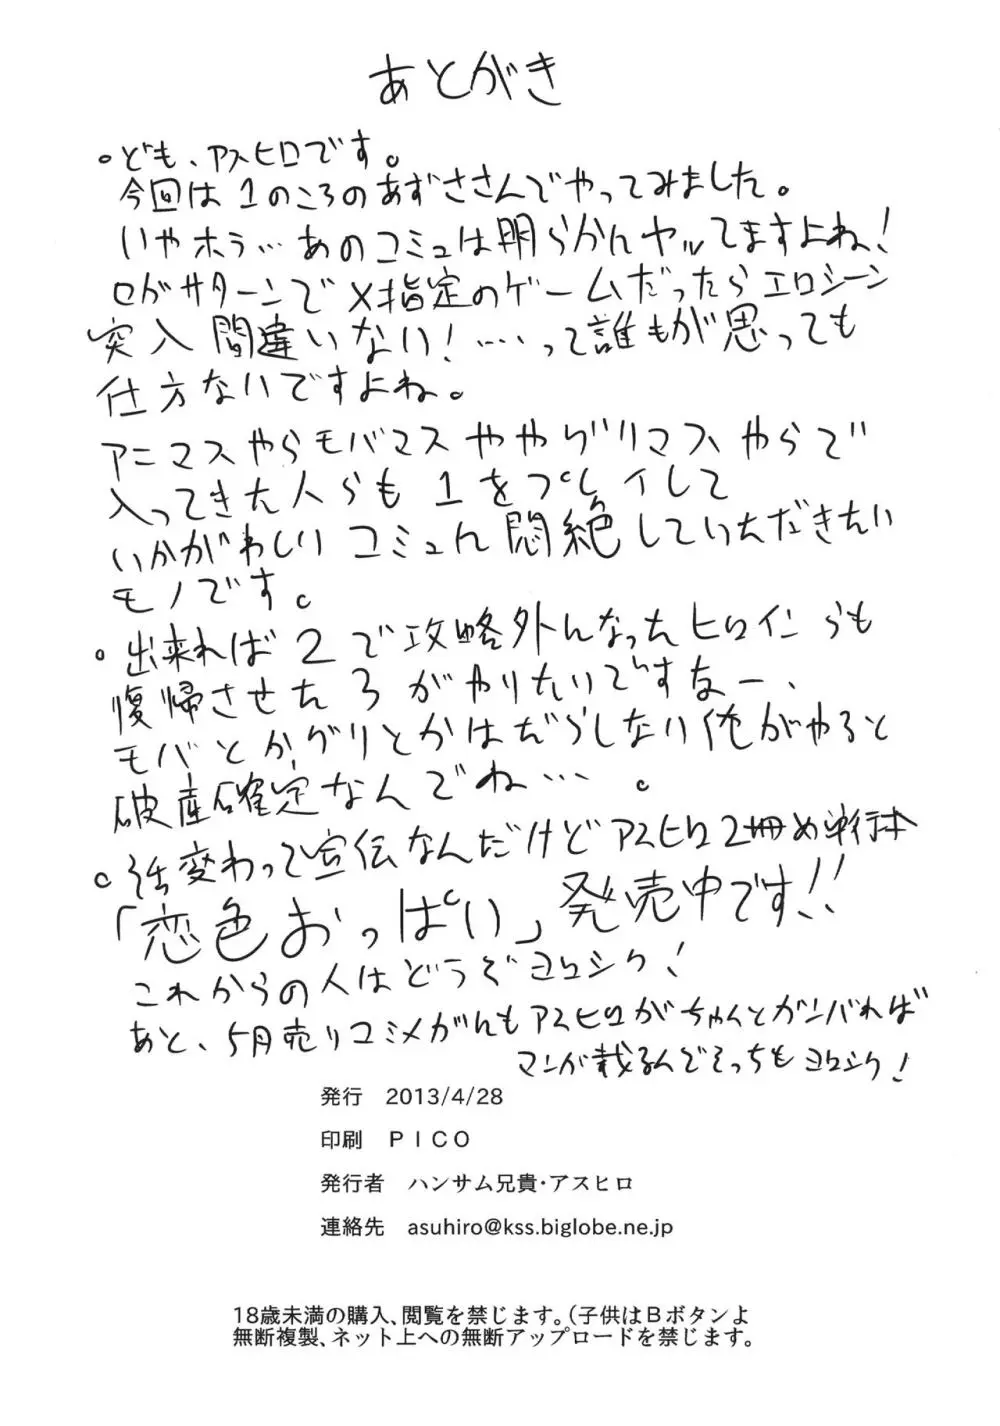 あとがき
。ども、アスヒロです。
今回は1のころのあずささんでやってみました。
いやホラ…あのコミュは明らかんヤッてますよね!
ロがサターンでX指定のゲームだったらエロシーン
突入間違いない!……って誰もが思っても
仕方ないですよね。
アニマスやらモバマスややグリマスやらで
入ってきた人らも1をプレイして
いかがわしいコミュん悶絶していただきたい
モノです。
。出来れば2で攻略外んなったヒロインらも
復帰させた3がやりたいですなー、
モバとかグリとかはだらしない俺がやると
破産確定なんでね…。
。話変わって宣伝なんだけどアスヒロ2冊め単行本
「恋色おっぱい」発売中です!!
これからの人はどうぞヨロシク!
あと、5月売りコミメガんもアスヒロがちゃんとガンバれば
マンガ載るんでそっちもヨロシク!
発行 2013/4/28
印刷 PICO
発行者 ハンサム兄貴・アスヒロ
連絡先 asuhiro@kss.biglobe.ne.jp
18歳未満の購入、閲覧を禁じます。(子供はBボタンよ
無断複製、ネット上への無断アップロードを禁じます。